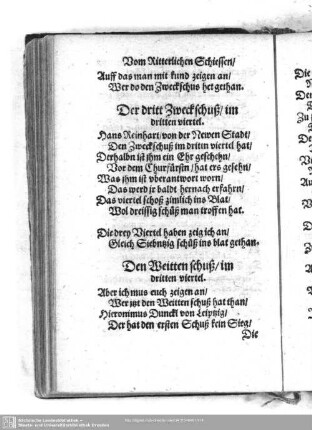 Vom Ritterlichen Schiessen/
Auff das man mit kund zeigen an/
Wer do den Zweckschus het gethan.
Der dritt Zweckschuß/ im
dritten viertel.
Hans Reinhart/ von der Newen Stadt/
Den Zweckschuß im dritin viertel hat/
Derhalbn ist jhm ein Ehr geschehn/
Vor dem Churfürstn/ hat ers gesehn/
Was jhm ist vberantwort worn/
Das werd jr baldt hernach erfahrn/
Das viertel schoß zimlich ins Blat/
Wol dreissig schüß man troffen hat.
Die drey Viertel haben zeig ich an/
Gleich Siebntzig schüß ins blat gethan.
Den Weitten schuß/ im
dritten viertel.
Aber ich mus euch zeigen an/
Wer itzt den Weitten schuß hat than/
Hieronimus Dunckl von Leiptzig/
Der hat den ersten Schuß kein Sieg/
Die